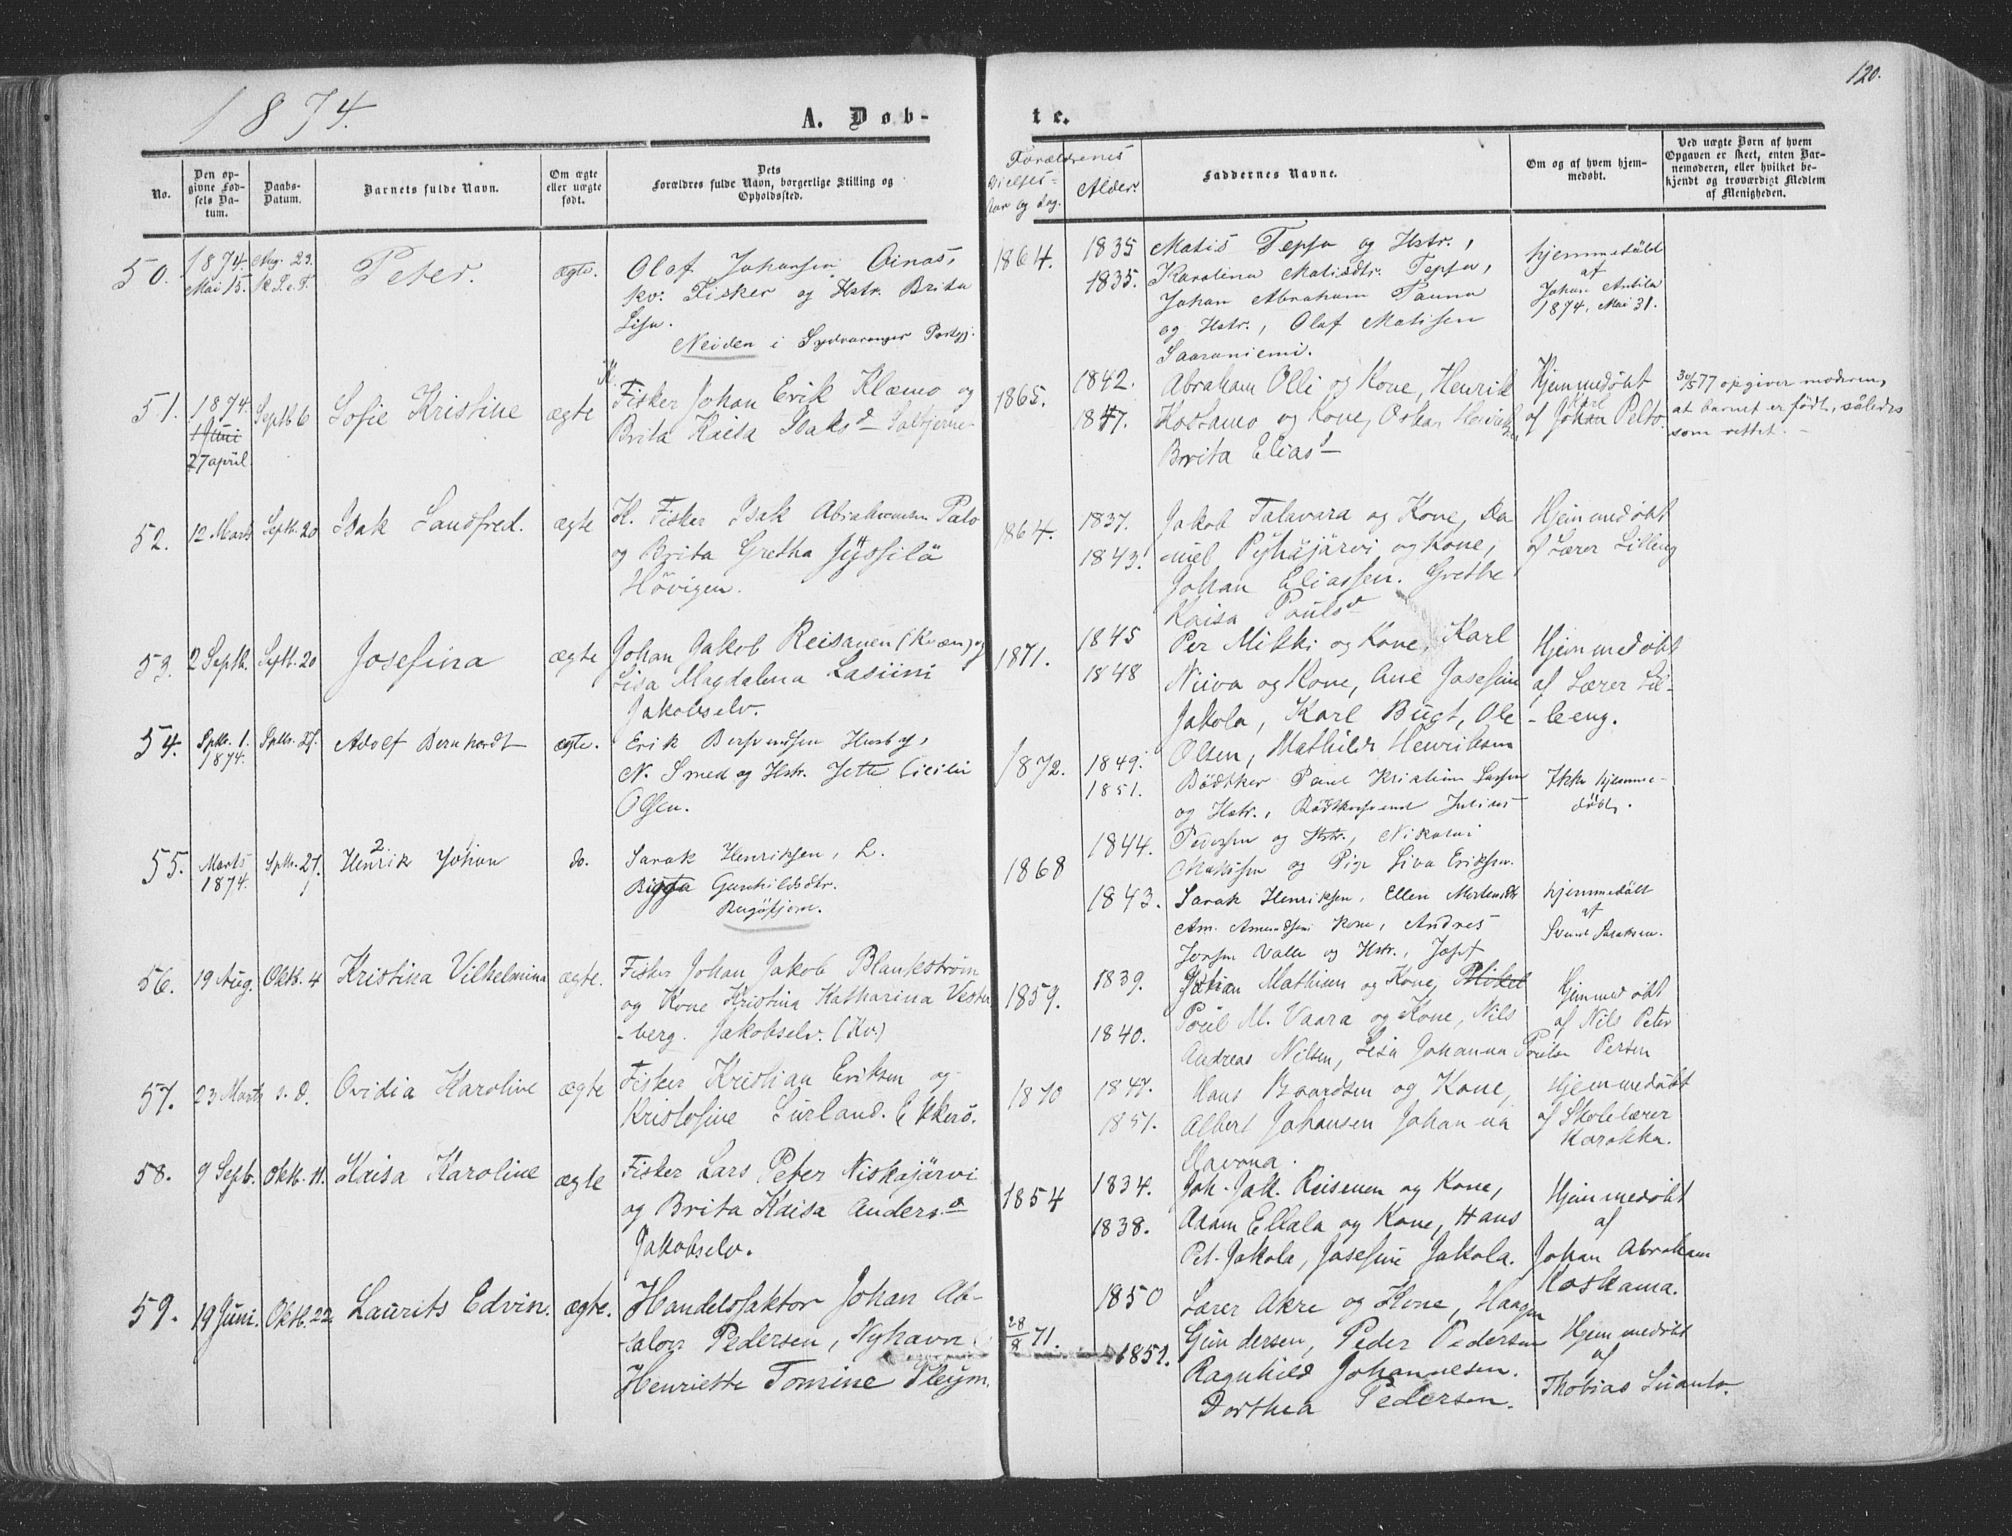 120.
1874.
A. Døb-
te.
No.
Den op-
givne Fød-
sels Da-
tum.
Daabs-
Datum.
Barnets fulde Navn.
Om ægte
eller uægte
født.
Dets
Forældres fulde Navn, borgerlige Stilling og
Opholdssted.
Forældrenes
Vielses-
Aar og Dag.
Alder.
Faddernes Navne.
Om og af hvem hjem-
medøbt.
Ved uægte Børn af hvem
Opgaven er skeet, enten Bar-
nemoderen, eller hvilket be-
kjendt og troværdigt Medlem
af Menigheden.
50.
1874.
Mai 15.
Aug. 23.
Peter.
ægte.
Olaf Johansen Oinas,
kv: Fisker og Hstr. Brita
Lisa.
Neiden i Sydvaranger Præstgj.
1864.
1835
1835.
Matis Tepsa og Hstr.,
Karolina Matisdtr. Tepsa,
Johan Abraham Pauna
og Hstr., Olaf Matisen
Saaraniemi.
hjemmedøbt
af
Johan Antila
1874. Mai 31.
51.
1874.
1 Juni
27 april.
Septb 6
Sofie Kristine
ægte
K.
Fisker Johan Erik Klæmo og
Brita Kaisa Isaksd
1865.
1842.
1847.
Abraham Olli og Kone, Henrik
Kotsamo og Kone, Oskar
Brita Eliasd
Hjemmedøbt
Karl
af Johan Pelto.
30/5 77 opgiver moderen,
at barnet er født, således
som rettet.
52.
12 Marts
Septb. 20
Isak Sandfred.
ægte
K. Fisker Isak Abrahamsen Palo
og Brita Gretha
Høvigen.
1864.
1837.
1843.
Jakob Talavara og Kone, Da
niel Pyhäjärvi og Kone,
Johan Eliassen. Grethe
Kaisa Paulsd
Hjemmedøbt
af Lærer Lilleng
53.
2 Septb.
Septb. 20
Josefina
ægte
Johan Jakob Reisanen (Kvæn) og
Lisa Magdalena Lasiini
Jakobselv.
1871.
1845
1848
Per Mikki og Kone, Karl
Niiva og Kone, Ane Josefine
Jakola, Karl Bugt, Ole
Olsen, Mathilde Henriksen
Hjemmedøbt
af Lærer Lil-
-leeng.
54.
Sptbr. 1.
1874.
Sptbr. 27.
Adolf Bernhardt
ægte.
Erik Bersvendsen Husby,
N. Smed og Hstr. Jette Cicilie
Olsen.
1872.
1849.
1851.
Bødtker Paul Kristian Larsen
og Hstr., Bødtkersvend Julius
Pedersen og Hstr., Nikolai
Matisen og Pige Liva Eriksen.
Ikke hjemme-
døbt.
55.
2
Marts
1874.
Sptbr. 27.
Henrik Johan
do.
Sarak Henriksen, L.
Bigga Gunhildsdtr.
Bugøfjord.
1868
1844.
1843.
Sarak Henriksen, Ellen Mortensdtr.
Am. Amundsens Kone, Andres
Jorsen Valle og Hstr., Josef
hjemmedøbt
af
Svend Saraksen.
56.
19 Aug.
Oktb. 4
Kristina Vilhelmina
ægte.
Fisker Johan Jakob Blankstrøm
og Kone Kristina Katharina Vester
-berg. Jakobselv. (Kv.)
1859.
1839.
1840.
Johan Mathisen og Kone, Mikel
Poul M. Vaara og Kone, Nils
Andreas Nilsen, Lisa Johanna Poulse
Hjemmedøbt
af Nils Peter
Persen
57.
23 Marts
s. D.
Ovidia Karoline
ægte
Fisker Kristian Eriksen og
Kristofine Surland. Ekkerø.
1870
1847.
1851.
Hans Baardsen og Kone,
Albert Johansen Johanna
Slavona.
Hjemmedøbt
af Skolelærer
Karakka.
58.
9 Septb.
Oktb. 11.
Kaisa Karoline
ægte
Fisker Lars Peter Niskajärvi
og Brita Kaisa Andersd
Jakobselv.
1854
1834.
1838.
Joh. Jak. Reisenen og Kone,
Adam Ellala og Kone, Hans
Pet. Jakola, Josefine Jakola.
Hjemmedøbt
af
Johan Abraham
Koskama.
59.
19 Juni.
Oktb. 22
Laurits Edvin.
ægte.
Handelsfaktor Johan Ab-
salon Pedersen, Nyhavn
Henriette Tomine Pleym.
28/8 71.
1850
1852.
Lærer Akre og Kone, Haagen
Gundersen, Peder Pedersen
Ragnhild Johannesen.
Dorthea Pedersen.
Hjemmedøbt
af
Thobias Suanto.